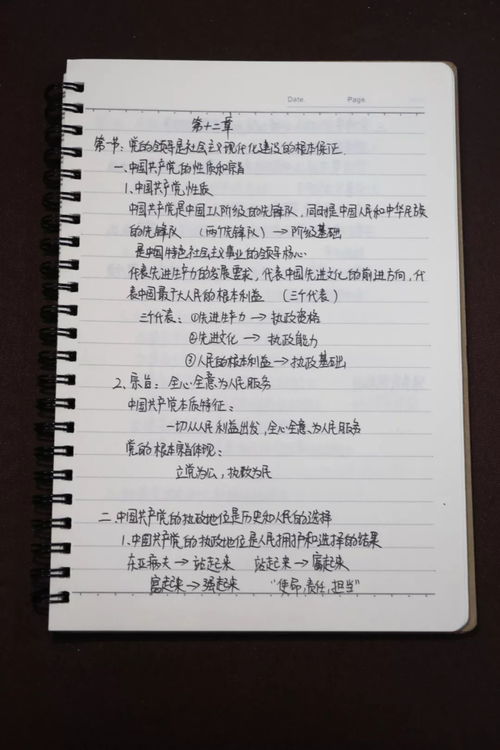 Date.    Page.
第十二章
第一节：党的领导是社会主义现代化建设的根本保证.
一、中国共产党的性质和宗旨
1、中国共产党性质
中国共产党是中国工人阶级的先锋队，同时是中国人民和中华民族
的先锋队 （两个先锋队）→ 阶级基础
是中国特色社会主义事业的领导核心
代表先进生产力的发展要求，代表中国先进文化的前进方向，代
表中国最广大人民的根本利益 （三个代表）
三个代表：①先进生产力 → 执政资格
②先进文化 → 执政能力
③人民的根本利益 → 执政基础
2、宗旨：全心全意为人民服务
中国共产党本质特征：
一切从人民利益出发，全心全意、为人民服务
党的根本宗旨体现：
立党为公，执政为民
二、中国共产党的执政地位是历史和人民的选择
1、中国共产党的执政地位是人民拥护和选择的结果
东亚病夫 → 站起来 站起来 → 富起来
富起来 → 强起来 “使命，责任，担当”